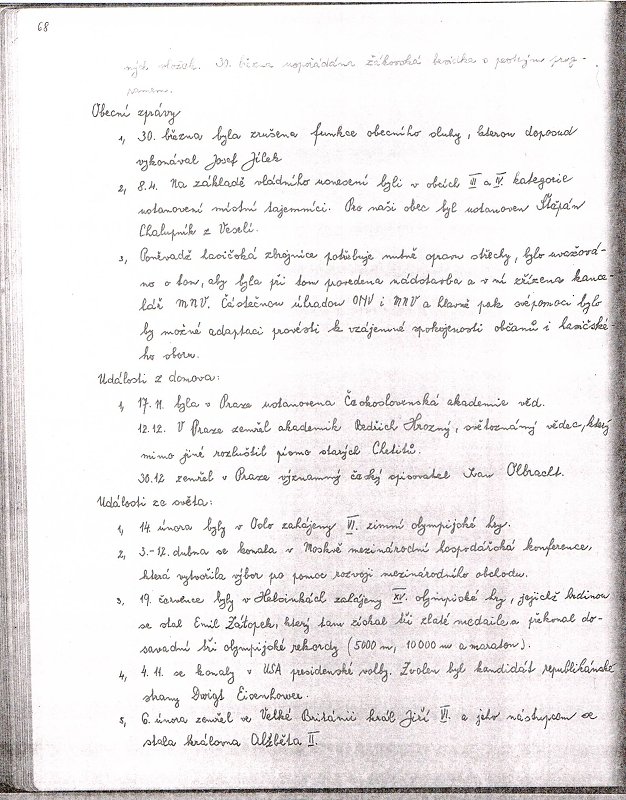 68
ných složek. 30. března uspořádána žákovská besídka s pestrým prog-
ramem.
Obecní zprávy
1, 30. března byla zrušena funkce obecního sluhy, kterou doposud
vykonával Josef Jílek
2, 8.4. Na základě vládního usnesení byli v obcích III a IV. kategorie
ustanoveni místní tajemníci. Pro naši obec byl ustanoven Štěpán
Chalupník z Veselí.
3, Poněvadž hasičská zbrojnice potřebuje nutně opravu střechy, bylo uvažová-
no o tom, aby byla při tom provedena nádstavba a v ní zřízena kance-
lář MNV. Částečnou úhradou ONV i MNV a hlavně pak svépomocí bylo
by možné adaptaci provésti k vzájemné spokojenosti občanů i hasičské
ho sboru.
Události z domova:
1, 17.11. byla v Praze ustanovena Československá akademie věd.
12.12. V Praze zemřel akademik Bedřich Hrozný, světoznámý vědec, který
mimo jiné rozluštil písmo starých Chetitů.
30.12 zemřel v Praze významný český spisovatel Ivan Olbracht.
Události ze světa:
1, 14. února byly v Oslo zahájeny VI. zimní olympijské hry.
2, 3.-12. dubna se konala v Moskvě mezinárodní hospodářská konference,
která vytvořila výbor po pomoc rozvoji mezinárodního obchodu.
3, 19. července byly v Helsinkách zahájeny XV. olympijské hry, jejichž hrdinou
se stal Emil Zátopek, který tam získal tři zlaté medaile a překonal do-
savadní tři olympijské rekordy (5000 m, 10000 m a maraton).
4, 4.11. se konaly v USA presidenské volby. Zvolen byl kandidát republikánské
strany Dwigt Eisenhower.
5, 6. února zemřel ve Velké Británii král Jiří VI. a jeho nástupcem se
stala královna Alžběta II.